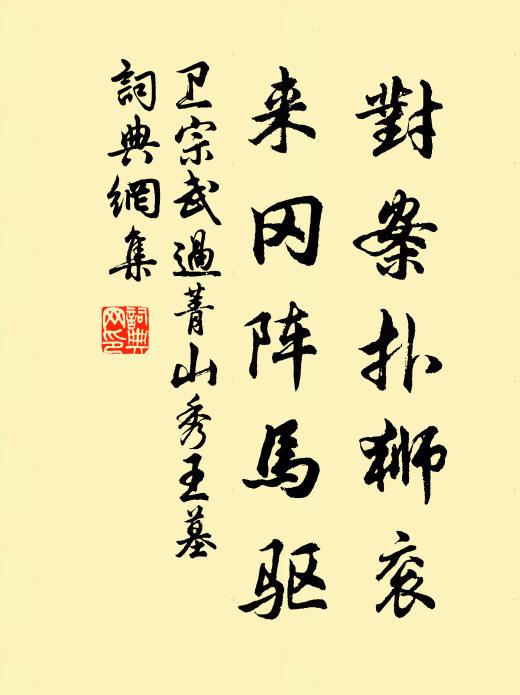 對案扑狮衮
来冈阵馬驱
卫宗武過菁山秀王墓
詞典網集
詞典网印